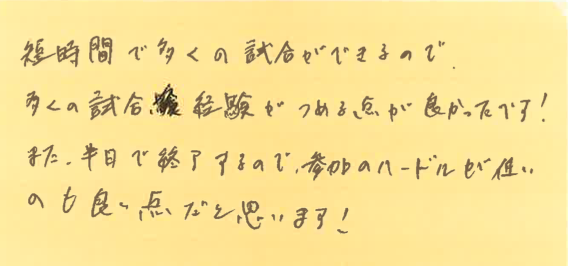 短時間で多くの試合ができるので、
多くの試合経験がつめる点が良かったです!
また、半日で終了するので、参加のハードルが低い
のも良い点だと思います!